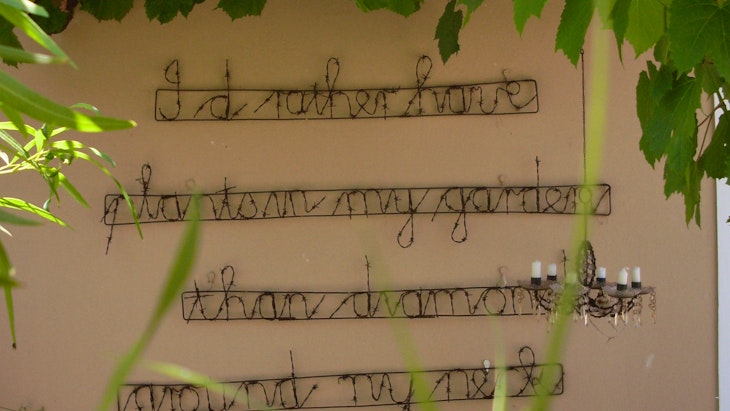 I'd rather have
plants in my garden
than diamon
around my neck